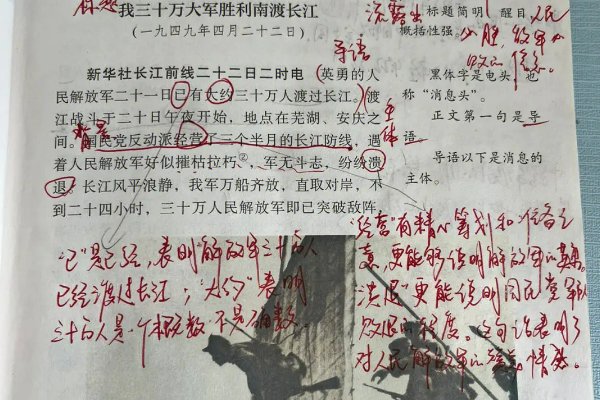 标题
我三十万大军胜利南渡长江
(一九四九年四月二十二日)
流露出
标题简明、醒目、
概括性强。
人民
必胜,敌军
必败的信念。
导语
新华社长江前线二十二日二时电 (英勇的人
民解放军二十一日已有大约三十万人渡过长江。)渡
江战斗于二十日午夜开始,地点在芜湖、安庆之
间。国民党反动派经营了三个半月的长江防线,遇
着人民解放军好似摧枯拉朽②,军无斗志,纷纷溃
退。长江风平浪静,我军万船齐放,直取对岸,不
到二十四小时,三十万人民解放军即已突破敌阵,
背景
主体
黑体字是电头,也
称“消息头”。
正文第一句是导
语
导语以下是消息的
主体。
“已”是已经,表明解放军三十万人
已经渡过长江;“大约”表明
三十万人是一个概数,不是确数。
“经营”有精心筹划和准备之
意,更能够说明解放军的英勇。
溃退”更能说明国民党军队
败退的程度。这句话表明了
对人民解放军的赞美情感。